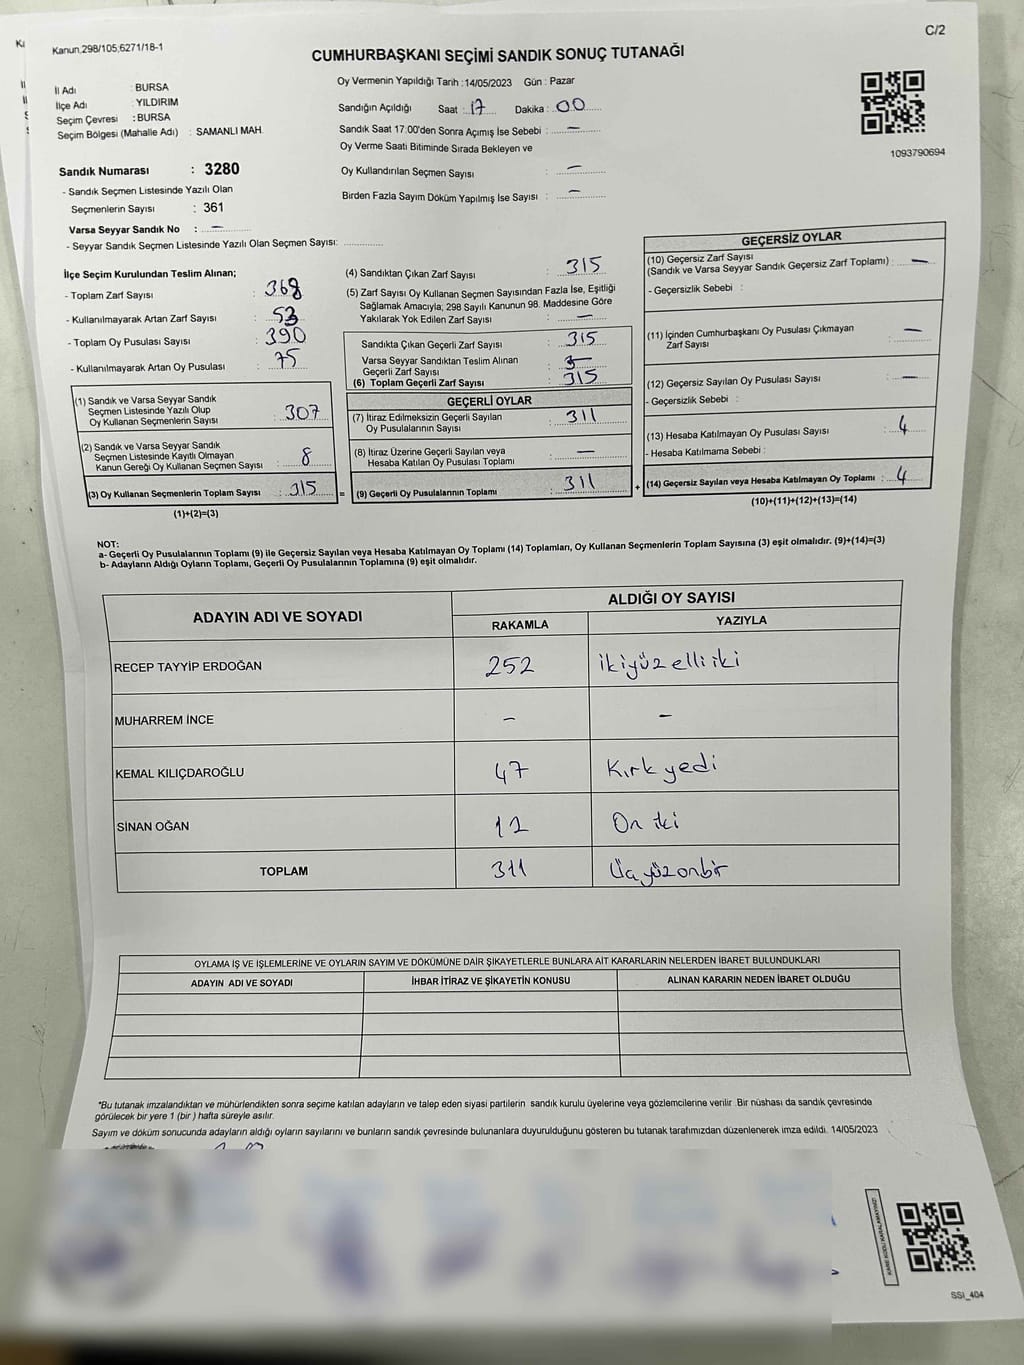 C/2
Kanun.298/105;6271/18-1
CUMHURBAŞKANI SEÇİMİ SANDIK SONUÇ TUTANAĞI
İl Adı : BURSA
İlçe Adı : YILDIRIM
Seçim Çevresi : BURSA
Seçim Bölgesi (Mahalle Adı) : SAMANLI MAH.
Oy Vermenin Yapıldığı Tarih :14/05/2023 Gün : Pazar
Sandığın Açıldığı Saat : 17 Dakika : 00
Sandık Saat 17:00'den Sonra Açımış İse Sebebi : —
Oy Verme Saati Bitiminde Sırada Bekleyen ve
Oy Kullandırılan Seçmen Sayısı : —
Birden Fazla Sayım Döküm Yapılmış İse Sayısı : —
1093790694
Sandık Numarası : 3280
- Sandık Seçmen Listesinde Yazılı Olan
Seçmenlerin Sayısı : 361
Varsa Seyyar Sandık No : —
- Seyyar Sandık Seçmen Listesinde Yazılı Olan Seçmen Sayısı:
İlçe Seçim Kurulundan Teslim Alınan;
- Toplam Zarf Sayısı : 368
- Kullanılmayarak Artan Zarf Sayısı : 53
- Toplam Oy Pusulası Sayısı : 390
- Kullanılmayarak Artan Oy Pusulası : 75
(1) Sandık ve Varsa Seyyar Sandık
Seçmen Listesinde Yazılı Olup
Oy Kullanan Seçmenlerin Sayısı : 307
(2) Sandık ve Varsa Seyyar Sandık
Seçmen Listesinde Kayıtlı Olmayan
Kanun Gereği Oy Kullanan Seçmen Sayısı : 8
(3) Oy Kullanan Seçmenlerin Toplam Sayısı : 315 =
(1)+(2)=(3)
(4) Sandıktan Çıkan Zarf Sayısı : 315
(5) Zarf Sayısı Oy Kullanan Seçmen Sayısından Fazla İse, Eşitliği
Sağlamak Amacıyla; 298 Sayılı Kanunun 98. Maddesine Göre
Yakılarak Yok Edilen Zarf Sayısı : —
Sandıkta Çıkan Geçerli Zarf Sayısı : 315
Varsa Seyyar Sandıktan Teslim Alınan
Geçerli Zarf Sayısı :
(6) Toplam Geçerli Zarf Sayısı : 315
GEÇERLİ OYLAR
(7) İtiraz Edilmeksizin Geçerli Sayılan
Oy Pusulalarının Sayısı : 311
(8) İtiraz Üzerine Geçerli Sayılan veya
Hesaba Katılan Oy Pusulası Toplamı : —
(9) Geçerli Oy Pusulalarının Toplamı : 311 +
GEÇERSİZ OYLAR
(10) Geçersiz Zarf Sayısı
(Sandık ve Varsa Seyyar Sandık Geçersiz Zarf Toplamı) : —
- Geçersizlik Sebebi :
(11) İçinden Cumhurbaşkanı Oy Pusulası Çıkmayan
Zarf Sayısı : —
(12) Geçersiz Sayılan Oy Pusulası Sayısı : —
- Geçersizlik Sebebi :
(13) Hesaba Katılmayan Oy Pusulası Sayısı : 4
- Hesaba Katılmama Sebebi :
(14) Geçersiz Sayılan veya Hesaba Katılmayan Oy Toplamı : 4
(10)+(11)+(12)+(13)=(14)
NOT:
a- Geçerli Oy Pusulalarının Toplamı (9) ile Geçersiz Sayılan veya Hesaba Katılmayan Oy Toplamı (14) Toplamları, Oy Kullanan Seçmenlerin Toplam Sayısına (3) eşit olmalıdır. (9)+(14)=(3)
b- Adayların Aldığı Oyların Toplamı, Geçerli Oy Pusulalarının Toplamına (9) eşit olmalıdır.
ADAYIN ADI VE SOYADI
ALDIĞI OY SAYISI
RAKAMLA YAZIYLA
RECEP TAYYİP ERDOĞAN 252 ikiyüz elli iki
MUHARREM İNCE – –
KEMAL KILIÇDAROĞLU 47 Kırk yedi
SİNAN OĞAN 12 On iki
TOPLAM 311 Üçyüzonbir
OYLAMA İŞ VE İŞLEMLERİNE VE OYLARIN SAYIM VE DÖKÜMÜNE DAİR ŞİKAYETLERLE BUNLARA AİT KARARLARIN NELERDEN İBARET BULUNDUKLARI
ADAYIN ADI VE SOYADI İHBAR İTİRAZ VE ŞİKAYETİN KONUSU ALINAN KARARIN NEDEN İBARET OLDUĞU
*Bu tutanak imzalandıktan ve mühürlendikten sonra seçime katılan adayların ve talep eden siyasi partilerin sandık kurulu üyelerine veya gözlemcilerine verilir. Bir nüshası da sandık çevresinde
görülecek bir yere 1 (bir ) hafta süreyle asılır.
Sayım ve döküm sonucunda adayların aldığı oyların sayılarını ve bunların sandık çevresinde bulunanlara duyurulduğunu gösteren bu tutanak tarafımızdan düzenlenerek imza edildi. 14/05/2023
KARE KODU KARALAMAYINIZ!
SSI_404